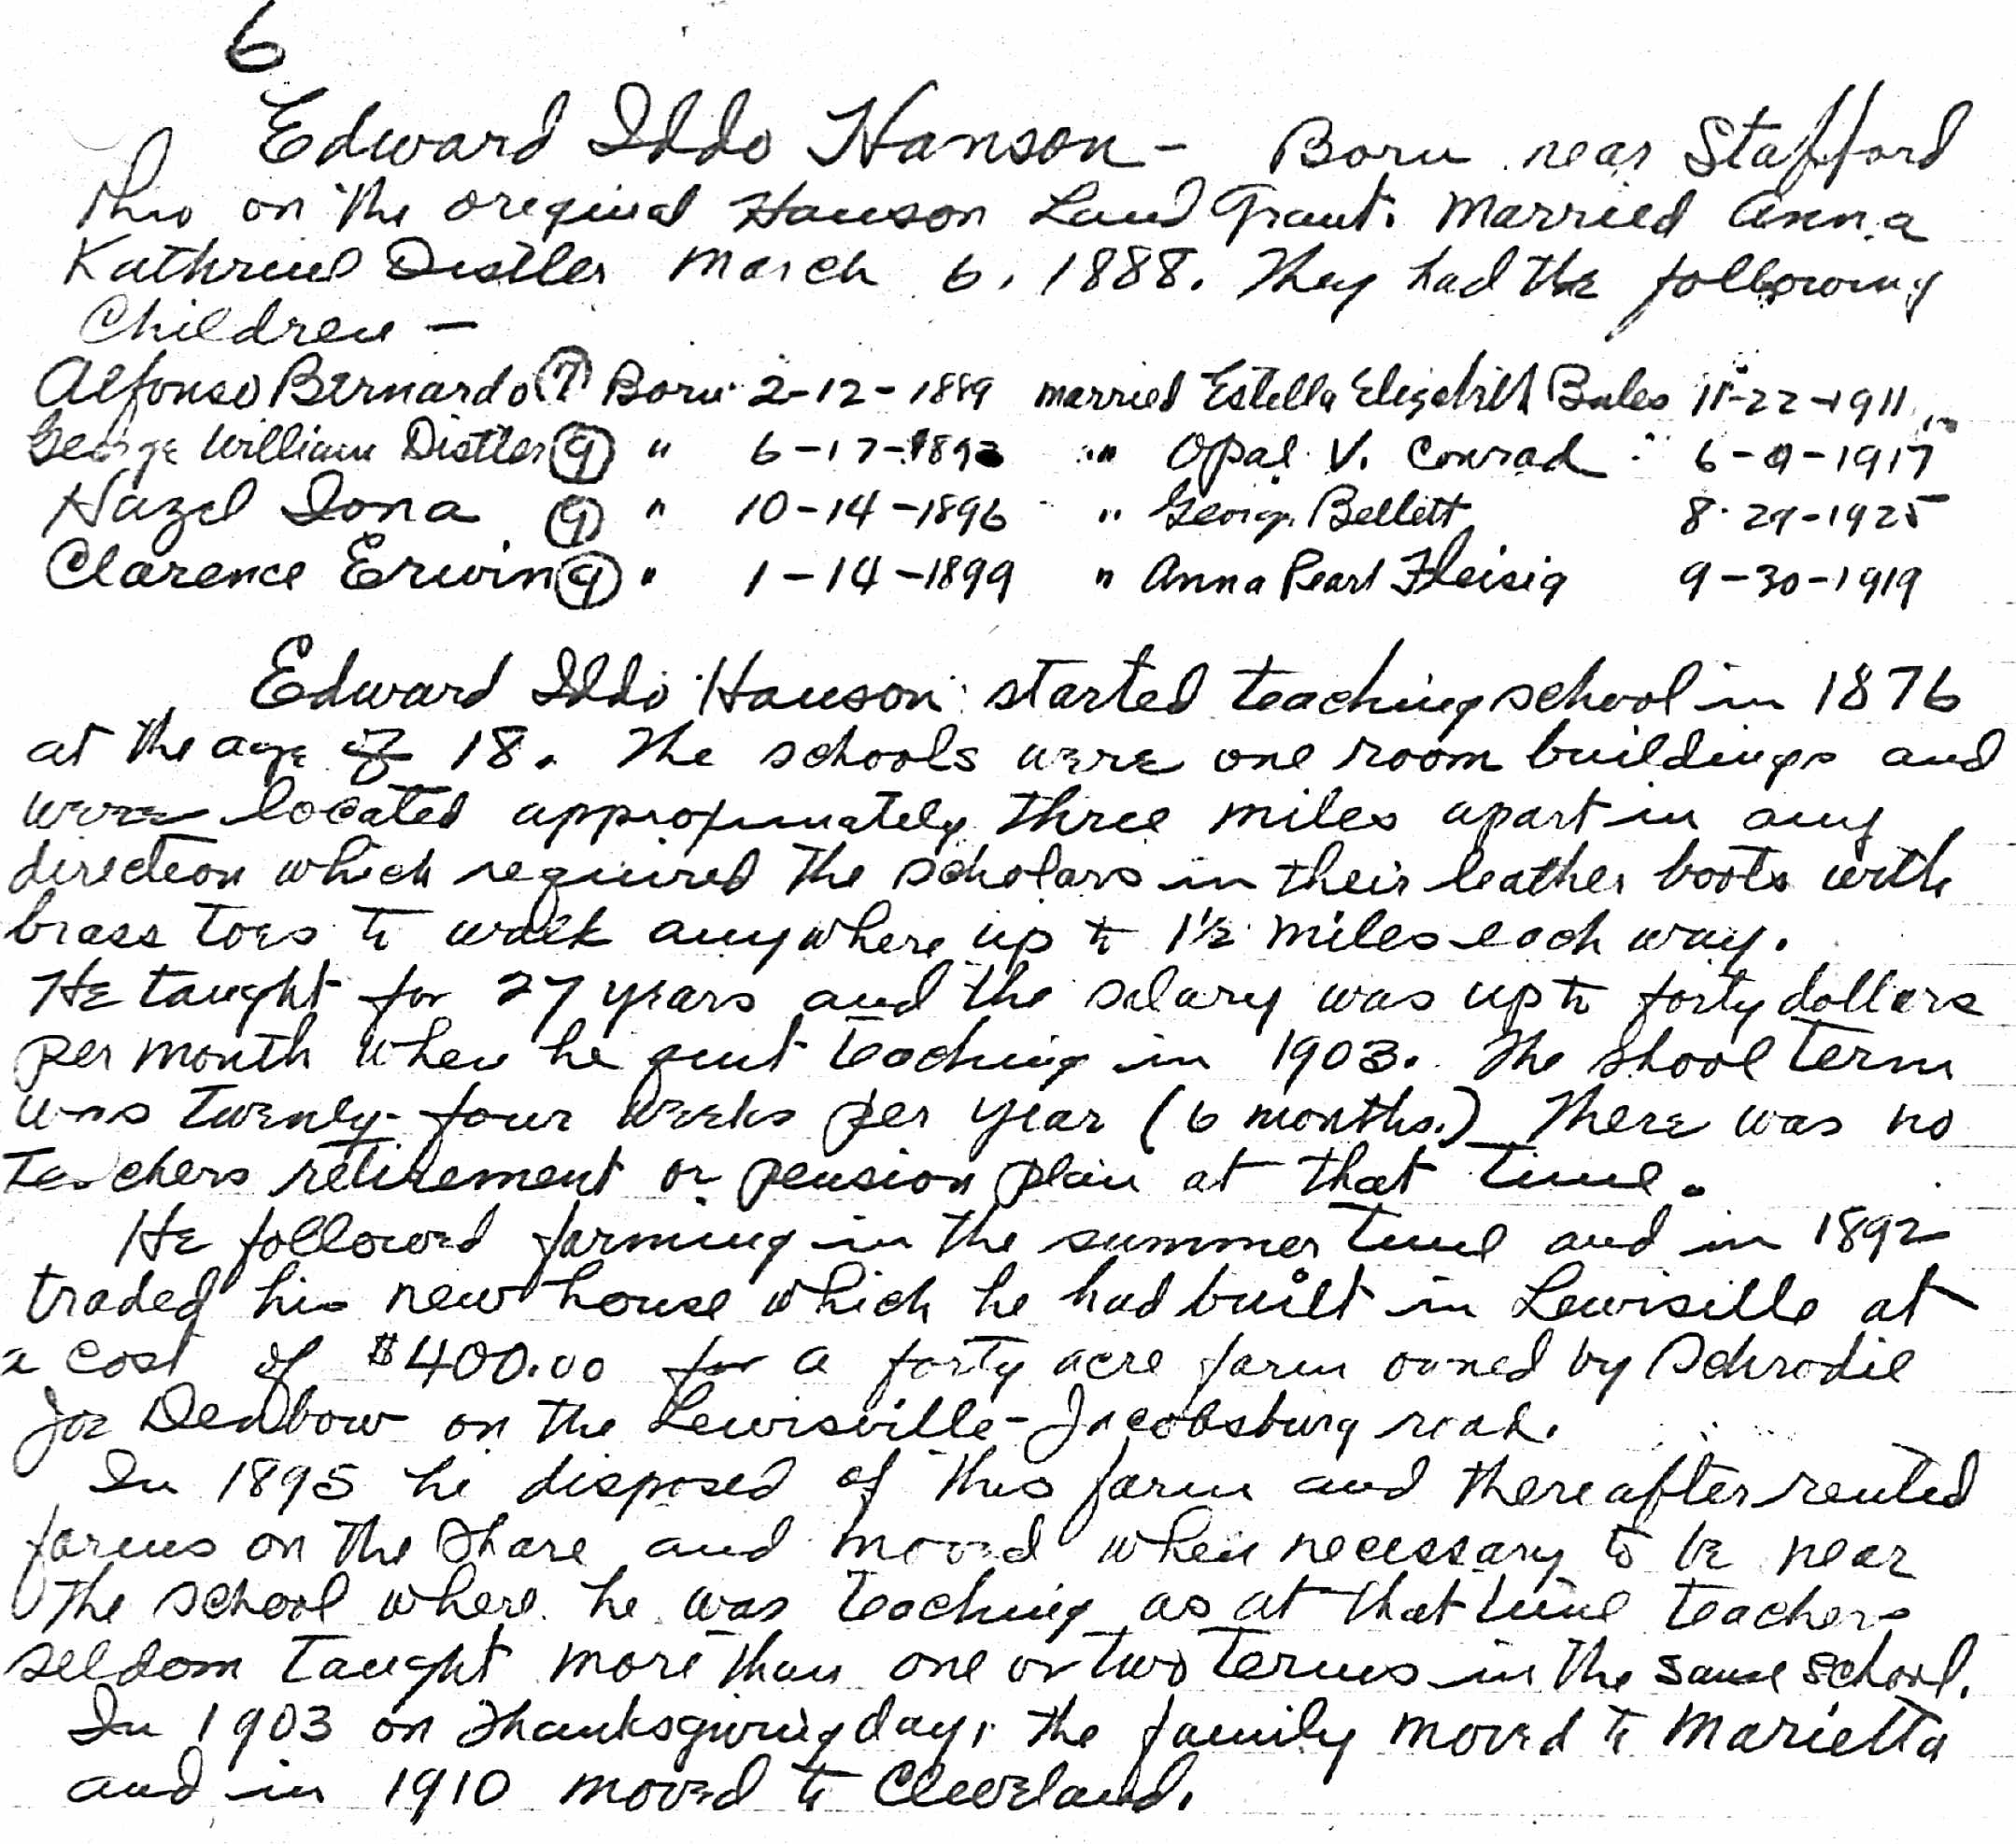 6
Edward Iddo Hanson - Born near Stafford
Ohio on the original Hanson Land Grant. Married Anna
Kathrine Distler March 6, 1888. They had the following
Children -
Alfonso Bernardo (7) Born 2-12-1889 married Estella Elizabeth Bales 11-22-1911
George William Distler (9) " 6-17-189 " Opal V. Conrad 6-9-1917
Hazel Iona (9) " 10-14-1896 " George Bellett 8-29-1925
Clarence Erwin (9) " 1-14-1899 " Anna Pearl Fleisig 9-30-1919
Edward Iddo Hanson started teaching school in 1876
at the age of 18. The schools were one room buildings and
were located approximately three miles apart in any
direction which required the scholars in their leather boots with
brass toes to walk anywhere up to 1½ miles each way.
He taught for 27 years and the salary was up to forty dollars
per month when he quit teaching in 1903. The shool term
was twenty-four weeks per year (6 months.) There was no
teachers retirement or pension plan at that time.
He followed farming in the summer time and in 1892
traded his new house which he had built in Lewisille at
a cost of $400.00 for a forty acre farm owned by Schrodie
Joe Denbow on the Lewisville-Jacobsburg road.
In 1895 he disposed of this farm and thereafter rented
farms on the share and moved when necessary to be near
the school where he was teaching as at that time teachers
seldom taught more than one or two terms in the same school.
In 1903 on Thanksgiving day, the family moved to Marietta
and in 1910 moved to Cleveland.